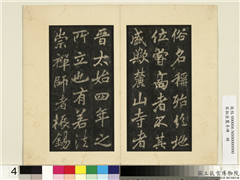 俗名稱殆絕地
位嘗高者不其
盛歟麓山寺者
晉太始四年之
所立也有若法
崇禪師者振錫
4
國立故宮博物院